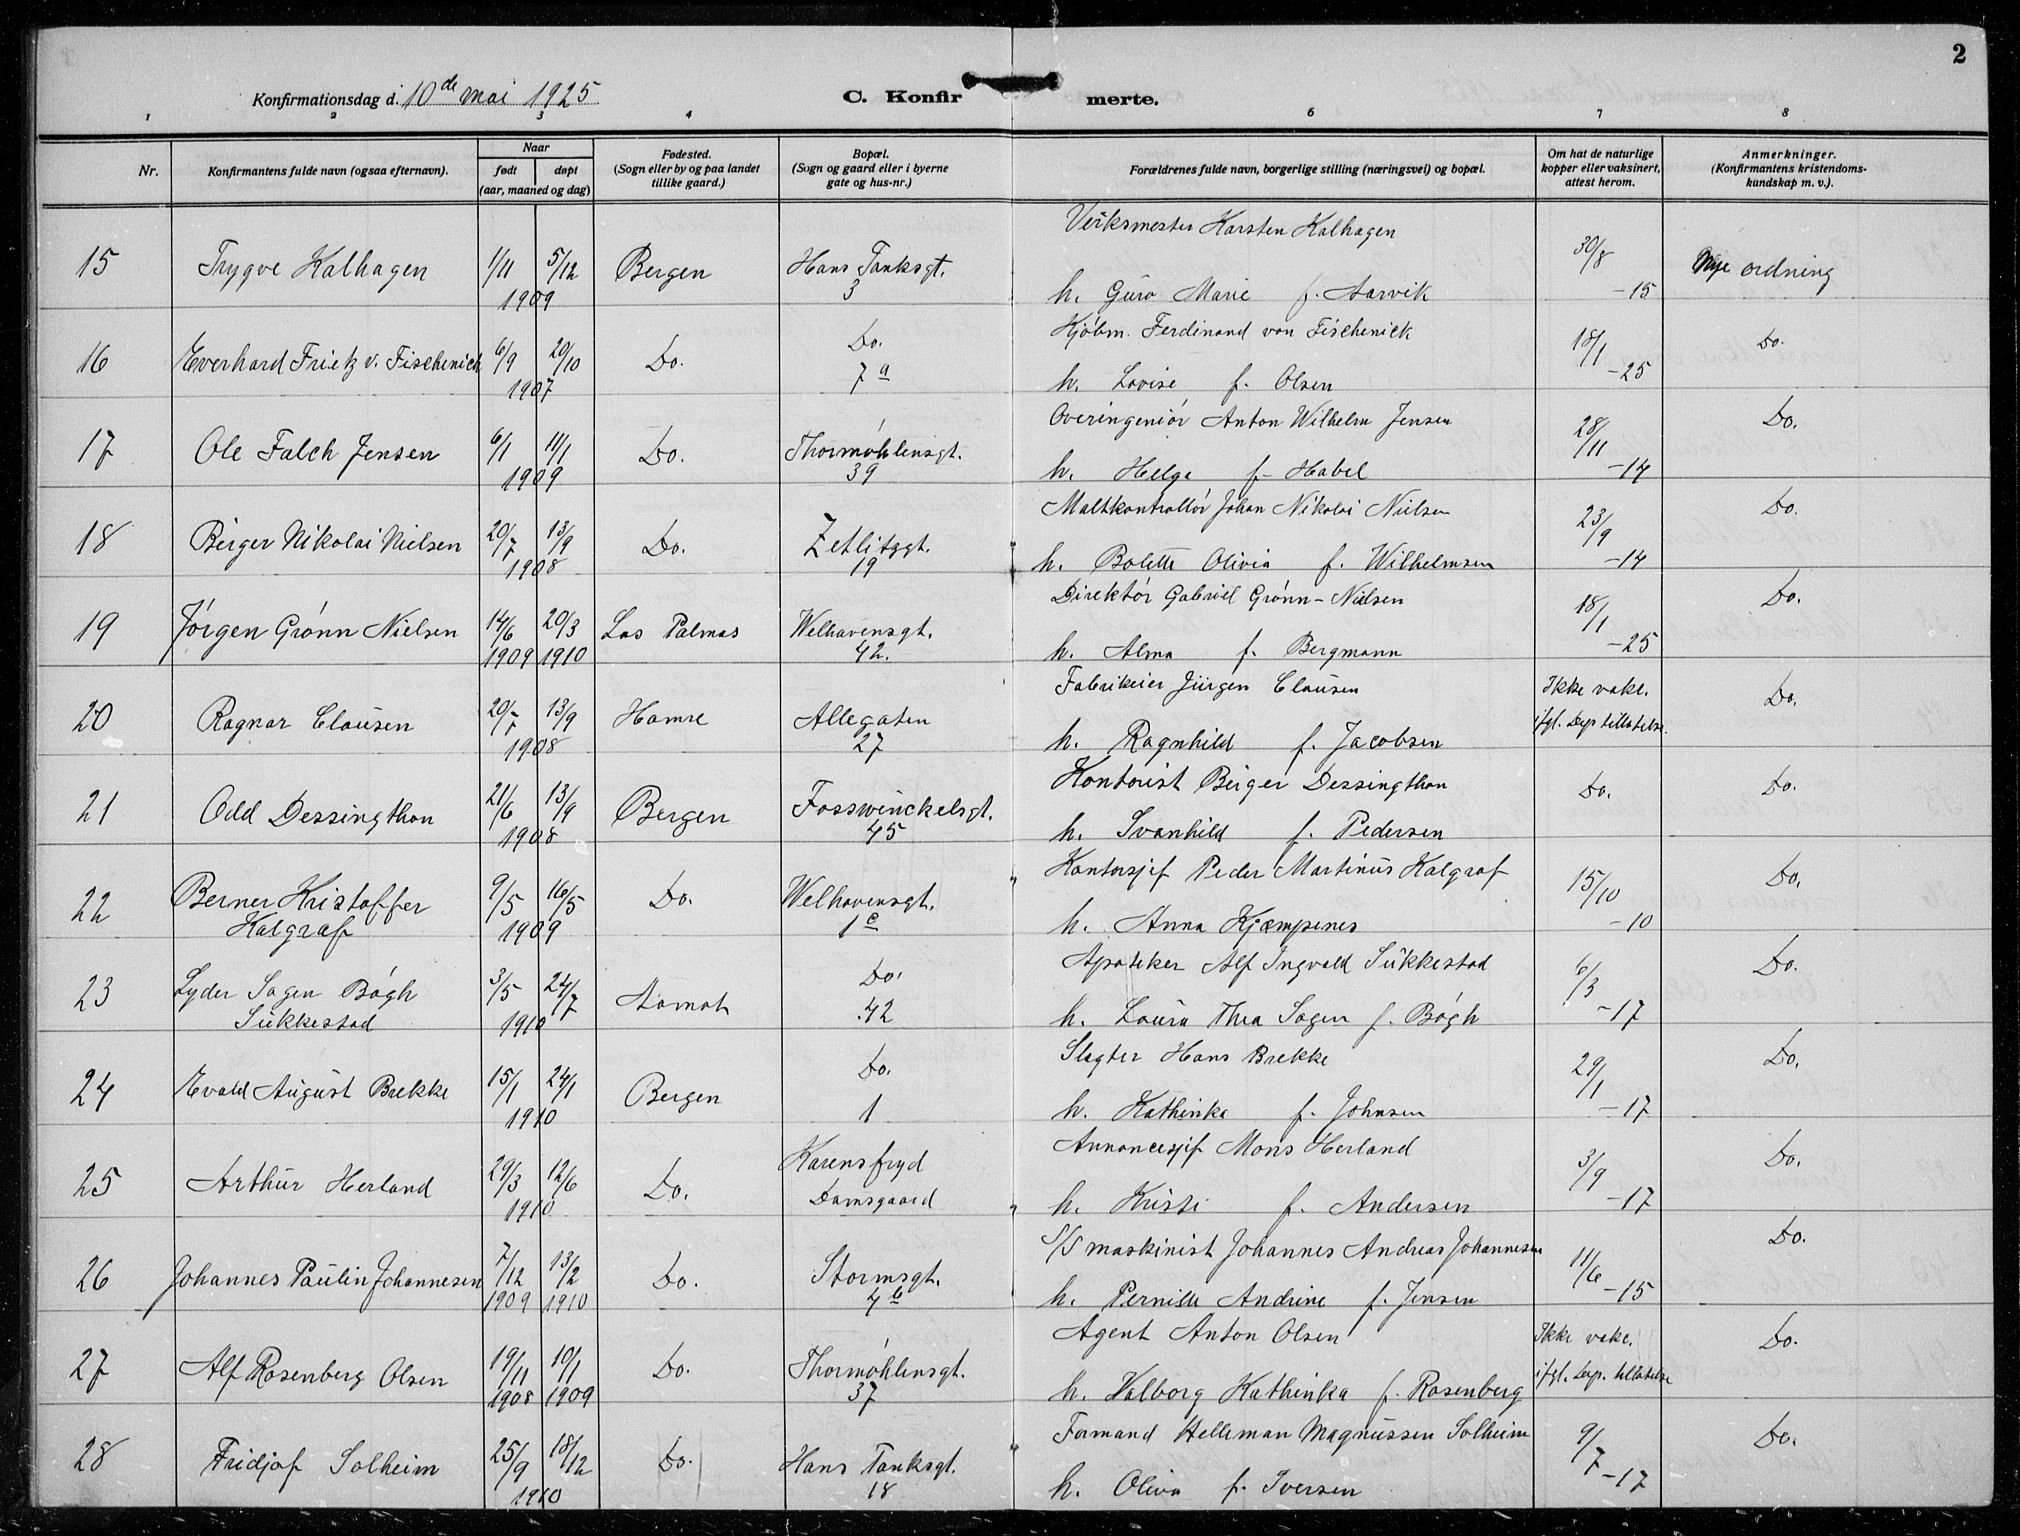 2
Konfirmationsdag d. 10de mai 1925
C. Konfirmerte.
1 2 3 4 5 6 7 8
Nr.
Konfirmantens fulde navn (ogsaa efternavn).
Naar
født
døpt
(aar, maaned og dag)
Fødested.
(Sogn eller by og paa landet
tillike gaard.)
Bopæl.
(Sogn og gaard eller i byerne
gate og hus-nr.)
Forældrenes fulde navn, borgerlige stilling (næringsvei) og bopæl.
Om hat de naturlige
kopper eller vaksinert,
attest herom.
Anmerkninger.
(Konfirmantens kristendoms-
kundskap m. v.).
Verksmester Karsten Kalhagen
15 Trygve Kalhagen 1/11 5/12 Bergen Hans Tanksgt. 30/8 Nye ordning
1909 3 h. Guro Marie f. Aarvik -15
Kjøbm. Ferdinand von Fischenick
16 Everhard Frietz v. Fischenich 6/9 20/10 Do. Do. 18/1 Do.
1907 7a h. Lovise f. Olsen -25
Overingeniør Anton Wilhelm Jensen
17 Ole Falch Jensen 6/1 11/1 Do. Thormøhlensgt. 28/11 Do.
1909 39 h. Helga f. Habel -14
Maltkontrollør Johan Nikolai Nielsen
18 Birger Nikolai Nielsen 20/7 13/9 Do. Zetlitzgt. 23/9 Do.
1908 19 h. Bolette Olivia f. Wilhelmsen -14
Direktør Gabriel Grønn-Nielsen
19 Jørgen Grønn Nielsen 14/6 20/3 Las Palmas Welhavensgt. 18/1 Do.
1909 1910 42. h. Alma f. Bergmann -25
Fabrikeier Jürgen Clausen Ikke vake.
20 Ragnar Clausen 20/7 13/9 Hamre Allegaten ifgl. Dep tillatelse. Do.
1908 27 h. Ragnhild f. Jacobsen
Kontorist Birger Dessingthon
21 Odd Dessingthon 21/6 13/9 Bergen Fosswinckelsgt. Do. Do.
1908 45 h. Svanhild f. Pedersen
Kontorsjef Peder Martinus Kalgraf
22 Berner Kristoffer 9/5 16/5 Do. Welhavensgt. 15/10 Do.
Kalgraf 1909 1c h. Anna Kjæmpenes -10
Apoteker Alf Ingvald Sukkestad
23 Lyder Sagen Bøgh 3/5 24/7 Aamot Do. 6/3 Do.
Sukkestad 1910 42 h. Laura Thea Sagen f. Bøgh -17
Slagter Hans Brekke
24 Evald August Brekke 15/1 24/1 Bergen Do. 29/1 Do.
1910 1 h. Kathinka f. Johnsen -17
Annoncesjef Mons Herland
25 Arthur Herland 29/3 12/6 Do. Karensfryd 3/9 Do.
1910 Damsgaard h. Kristi f. Andersen -17
S/S maskinist Johannes Andreas Johannesen
26 Johannes Paulin Johannesen 7/12 13/2 Do. Stormsgt. 11/6 Do.
1909 1910 4b h. Pernille Andrine f. Jensen -15
Agent Anton Olsen Ikke vake.
27 Alf Rosenberg Olsen 19/11 10/1 Do. Thormøhlensgt. ifgl. Dep. tillatelse Do.
1908 1909 37 h. Valborg Kathinka f. Rosenberg
Formand Helliman Magnussen Solheim
28 Fridjof Solheim 25/9 18/12 Do. Hans Tanksgt. 9/7 Do.
1910 18 h. Oliva f. Iversen -17